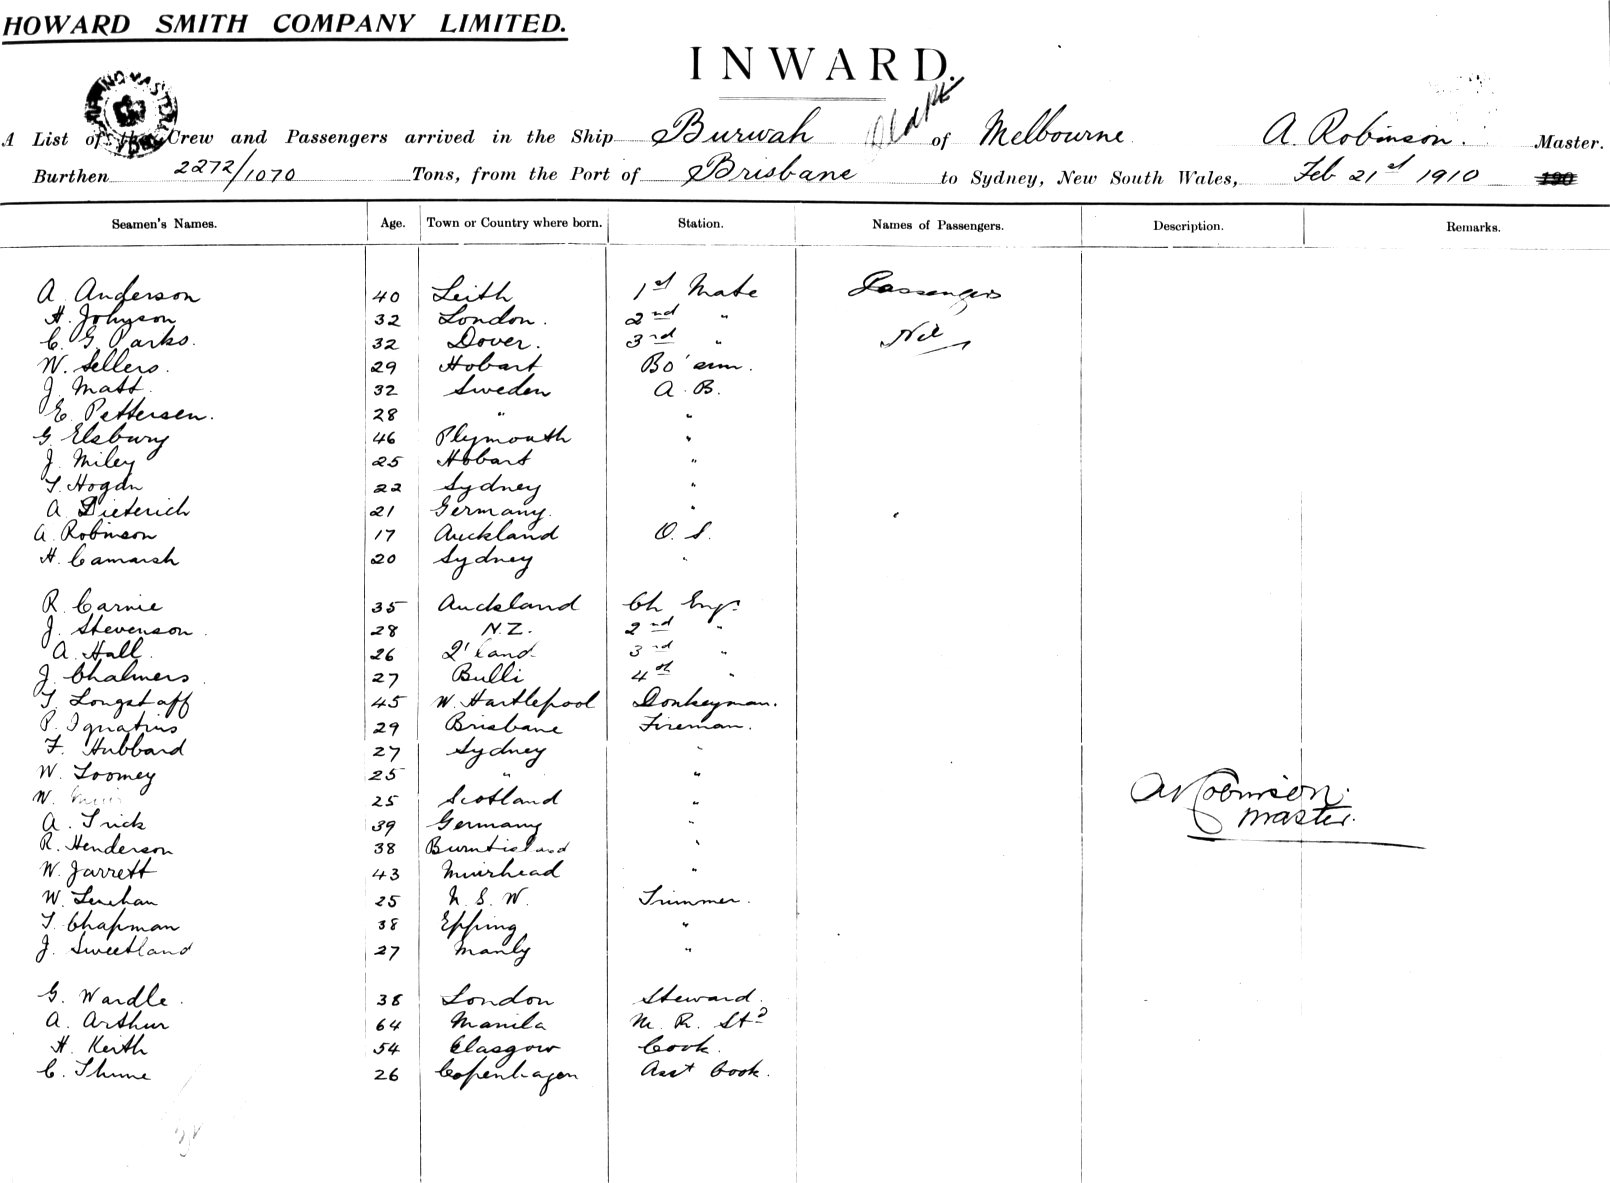 HOWARD SMITH COMPANY LIMITED.
INWARD.
A List of the Crew and Passengers arrived in the Ship Burwah of Melbourne A. Robinson. Master.
Burthen 2272/1070 Tons, from the Port of Brisbane to Sydney, New South Wales, Feb 21st 1910 190
Seamen's Names. Age. Town or Country where born. Station. Names of Passengers. Description. Remarks.
A. Anderson 40 Leith 1st Mate Passengers
H. Johnson 32 London. 2nd "
C. G. Parks. 32 Dover. 3rd " Nil
W. Sellers. 29 Hobart Bo'sun.
J. Matt. 32 Sweden A. B.
E. Pettersen. 28 " "
G. Elsbury 46 Plymouth "
J. Miley 25 Hobart "
T. Hogan 22 Sydney "
A. Dieterich 21 Germany. "
A. Robinson 17 Auckland O. S.
H. Camarsh 20 Sydney "
R. Carnie 35 Auckland Ch Engr
J. Stevenson. 28 N.Z. 2nd "
A. Hall. 26 Q'land. 3rd "
J. Chalmers. 27 Bulli 4th "
T. Longstaff 45 W. Hartlepool Donkeyman.
P. Ignatius 29 Brisbane Fireman.
F. Hubbard 27 Sydney "
W. Toomey 25 " "
W. 25 Scotland "
A. Trick 39 Germany "
R. Henderson 38 Burntisland "
W. Jarrett 43 Muirhead "
W. Lenehan 25 N. S. W. Trimmer.
T. Chapman 38 Epping "
J. Sweetland 27 Manly "
A Robinson.
Master.
G. Wardle. 38 London Steward.
A. Arthur 64 Manila M. R. Std
H. Keith 54 Glasgow Cook.
C. Thune 26 Copenhagen Asst Cook.